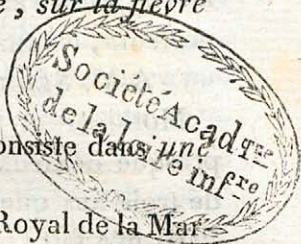 , sur la fièvre
Société Acad.que
de la Loire infre
onsiste dans une
Royal de la Mar-